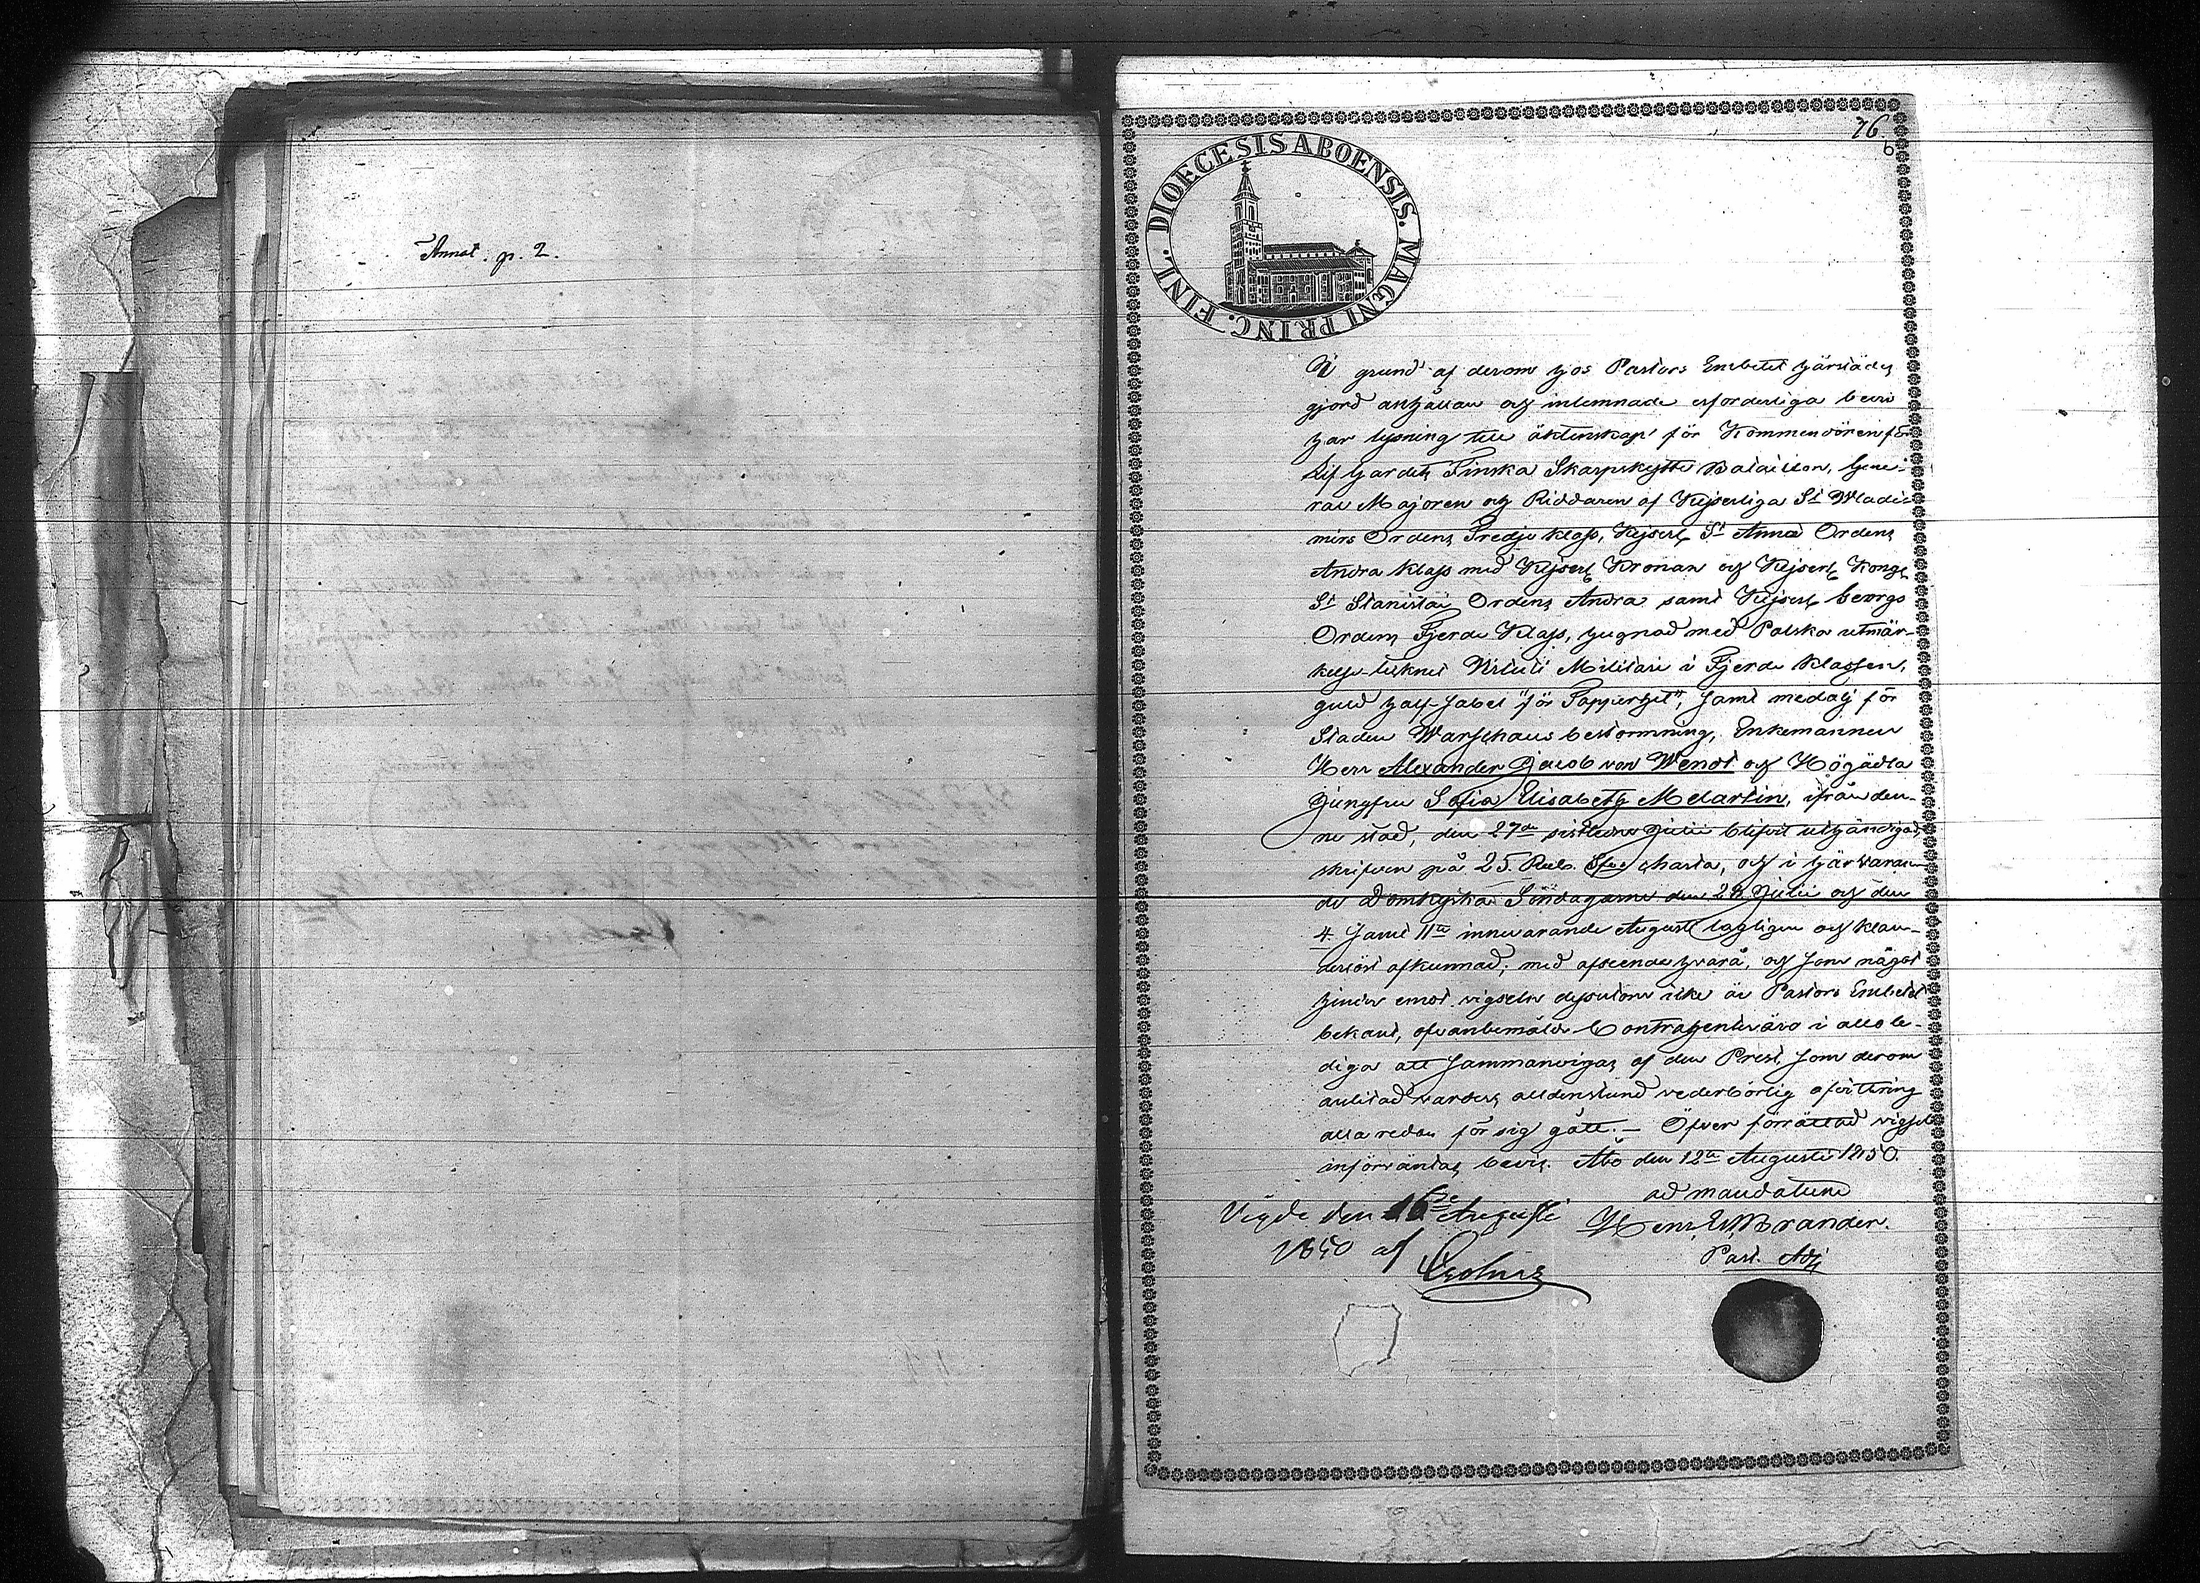 Annot. p. 2.
76
6
DIOECESIS ABOENSIS. MAGNI PRINC. FINL.
På grund af derom hos Pastors Embetet härstädes
gjord anhållan och inlemnade erforderliga bevis
har lysning till äktenskap för Kommendören för
Lif Gardets Finska Skarpskytte Bataillon, Gene-
ral Majoren och Riddaren af Kejserliga St Wladi-
mirs Ordens Tredje klass, Kejserl. St Annæ Ordens
Andra klass med Kejserl. Kronan och Kejserl. Kongl.
St Stanislai Ordens Andra samt Kejserl. Georgs
Ordens Fjerde Klass, hugnad med Polska utmär-
kelse-tecknet Virtuti Militari i Fjerde Klassen,
guld half-sabel "för Tapperhet", samt medalj för
Staden Warschaus bestormning, Enkemannen
Herr Alexander Jacob von Wendt och Högädla
Jungfru Sofia Elisabeth Melartin, ifrån den-
na stad, den 27de sistledne Julii blifvit uthändigad,
skrifven på 25 Rub. charta, och i härvaran-
de Domkyrka Söndagarne den 28 Julii och den
4 samt 11te innevarande Augusti lagligen och klan-
derlöst afkunnad; med afseende hvarå, och som något
hinder emot vigseln dessutom icke är Pastors Embetet
bekant, ofvanbemälde Contrahenter äro i allo le-
diga att sammanvigas af den Prest, som derom
anlitad varder, alldenstund vederbörlig afvittring
alla redan för sig gått. — Öfver förrättad vigsel
införväntas bevis. Åbo den 12te Augusti 1850.
ad mandatum
Henr. Brander.
Past. Adj.
Vigde den 16de Augusti
1850 af